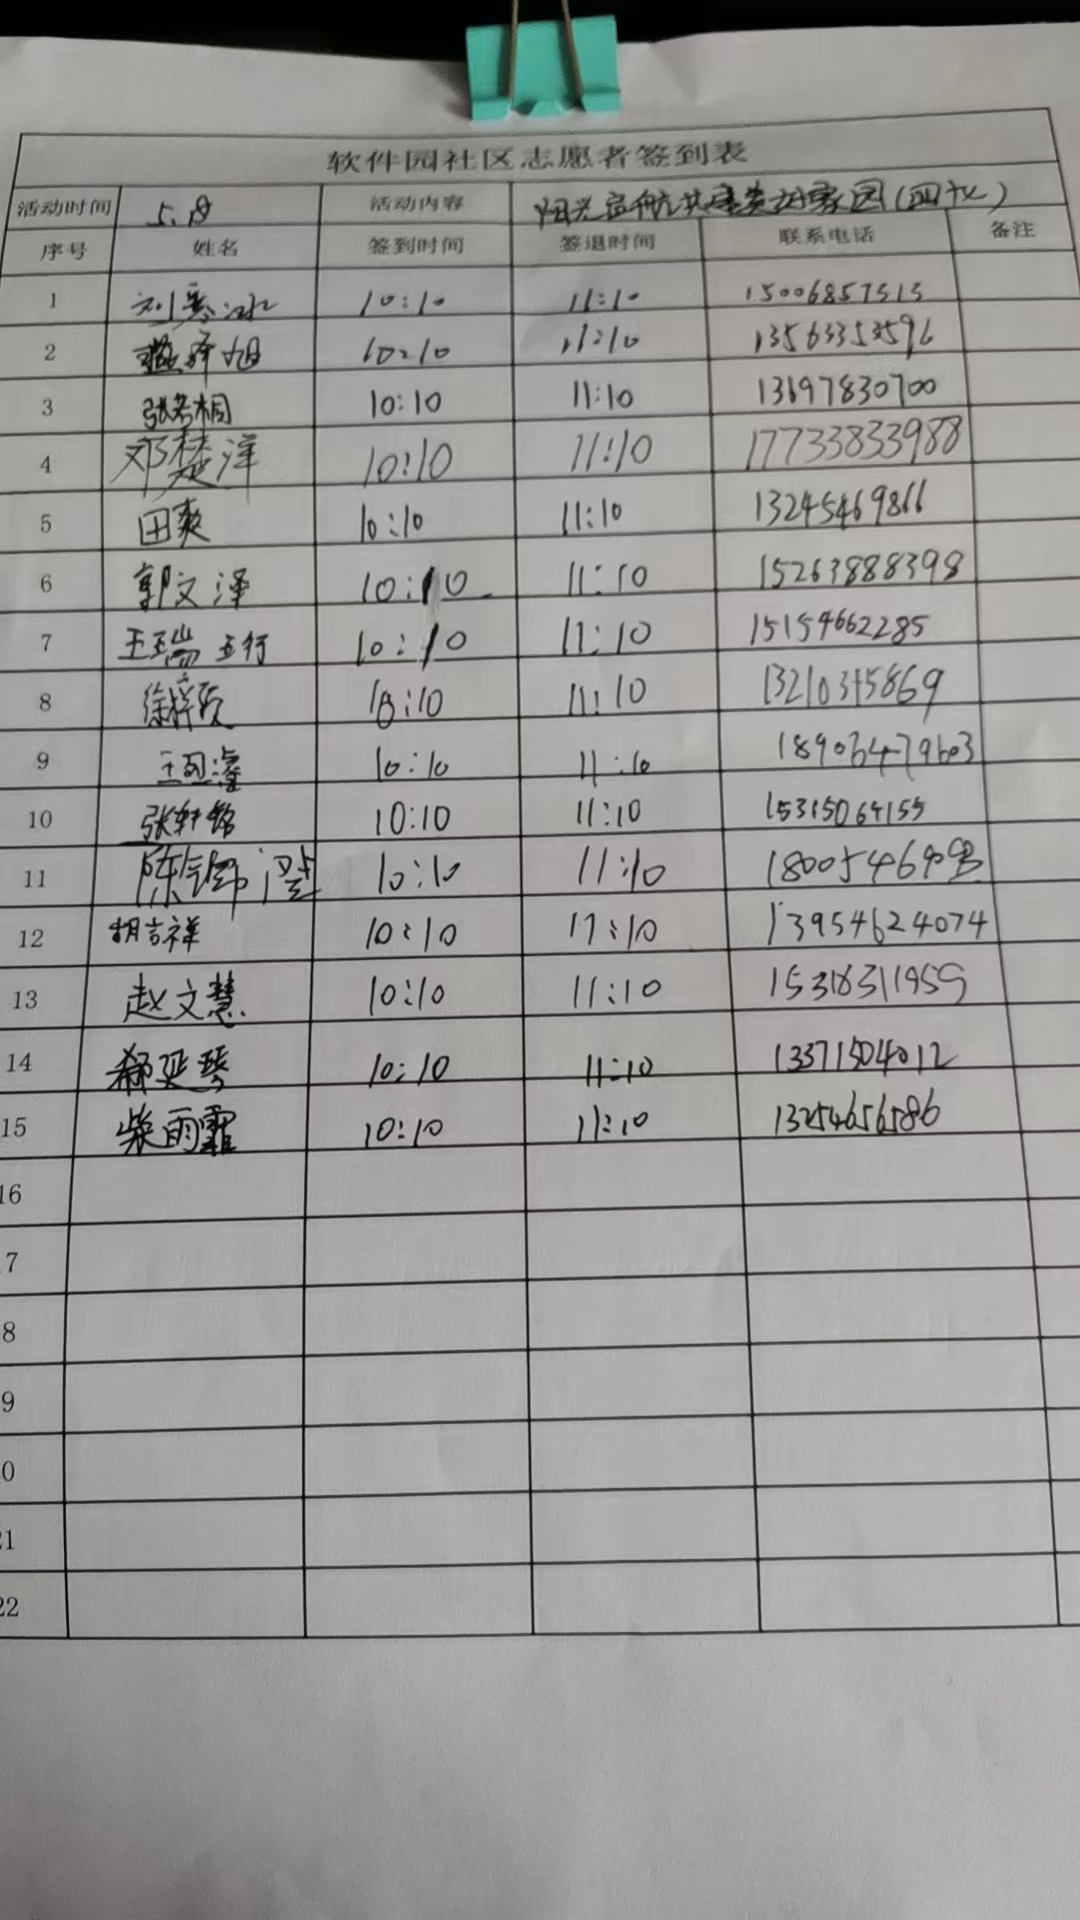 软件园社区志愿者签到表
活动时间 5.8 活动内容 阳光启航共建美好家园(四板)
序号 姓名 签到时间 签退时间 联系电话 备注
1 刘 冰 10:10 11:10 15006857313
2 泽旭 10:10 11:10 13563353596
3 张若桐 10:10 11:10 13697830700
4 邓楚洋 10:10 11:10 17733833988
5 田爽 10:10 11:10 13245469866
6 郭文泽 10:10 11:10 15263888398
7 王瑞 10:10 11:10 15154662285
8 徐梓 10:10 11:10 13210345869
9 王 10:10 11:10
10 张轩铭 10:10 11:10 15315064155
11 陈 10:10 11:10
12 胡吉祥 10:10 11:10 13954624074
13 赵文慧 10:10 11:10 15318311959
14 郝延琴 10:10 11:10 13371504012
15 柴雨霏 10:10 11:10 13254656586
16
7
8
9
0
21
22